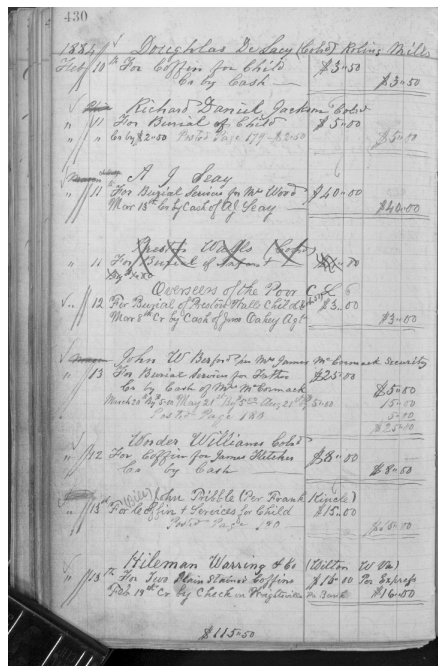 430
1884 Doughlas De Lacy (Cold) Roling Mills
Feb 10th For Coffin for Child $3.50
Cr by Cash — $3.50
Richard Daniel Jackson Cold
" 11 For Burial of Child $5.00
" " Cr by $2.50 Posted Page 579 - $2.50 $5.00
A J Seay
" 11 For Burial Services for Mr Wood $40.00
Mar 15th Cr by Cash of AJ Seay — $40.00
Preston Walls Cold
" 11 For Burial of
Overseers of the Poor
" 12 For Burial of Preston Walls Child $3.00
Mar 8th Cr by Cash of James Oakey Agt $3.00
John W for Mrs James McCormack Security
" 13 For Burial Services for Father $25.00
Cr by Cash of Mrs McCormack $5.00
March 20th By 5.00 May 21st By 5.00 Aug 21st By 5.00 15.00
Posted Page 180 5.00
$25.00
Wonder Williams Cold
" 12 For Coffin for James Fletcher $8.00
Cr by Cash $8.00
John Pribble (Per Frank Kincle)
" 15th For Coffin & Services for Child $15.00
Posted Page 190 — $15.00
Hileman Warring & Co (Wilton W Va)
" 18th For Two Plain Stained Coffins $16.00 Per Express
Feb 19th Cr by Check on Wrightsville Pa Bank $16.00
$115.50